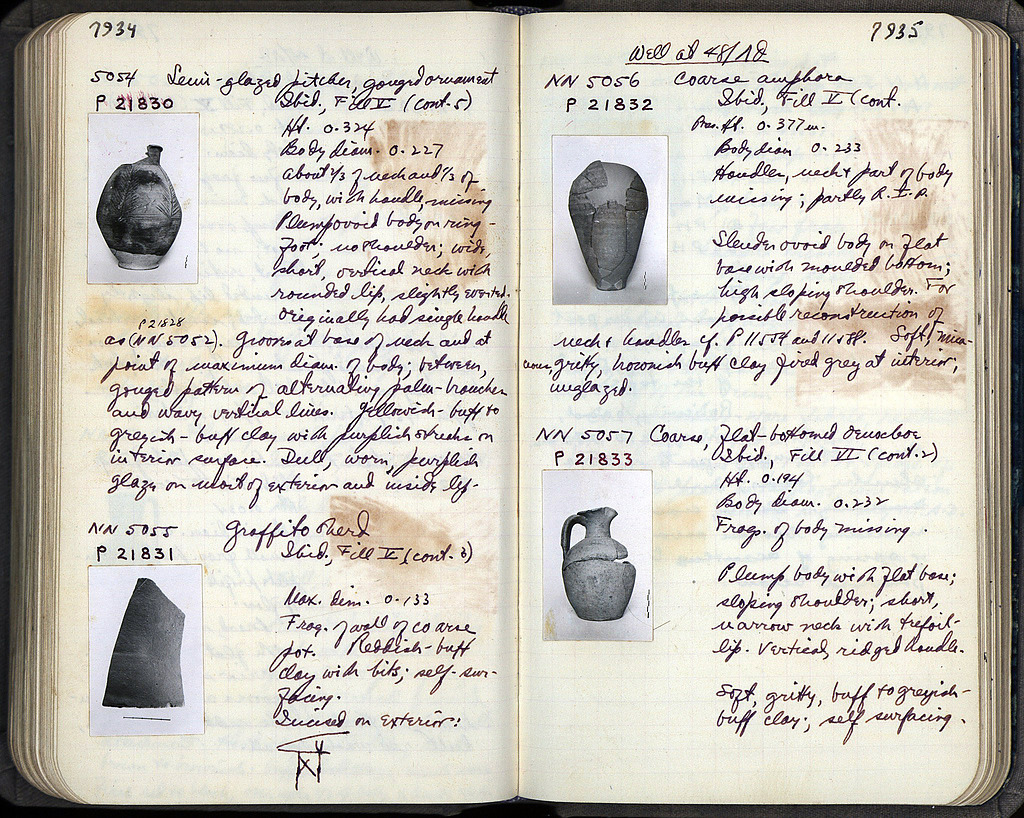 7934
5054 Semi-glazed pitcher, gouged ornament
P 21830 Ibid., Fill V (cont. 5)
Ht. 0.324
Body diam. 0.227
About 2/3 of neck and 1/3 of
body, with handle, missing
Plump ovoid body on ring-
foot; no shoulder; wide,
short, vertical neck with
rounded lip, slightly everted.
Originally had single handle
P 21828
as (NN 5052). Grooves at base of neck and at
point of maximum diam. of body; between,
gouged pattern of alternating palm-branches
and wavy vertical lines. Yellowish-buff to
greyish-buff clay with purplish streaks on
interior surface. Dull, worn, purplish
glaze on most of exterior and inside lip.
NN 5055 Graffito sherd
P 21831 Ibid., Fill V (cont. 3)
Max. dim. 0.133
Frag. of wall of coarse
pot. Reddish-buff
clay with bits; self-sur-
facing.
Incised on exterior:
7935
Well at 48/ΛΔ
NN 5056 Coarse amphora
P 21832 Ibid., Fill V (cont.
Pres. Ht. 0.377 m.
Body diam 0.233
Handles, neck & part of body
missing; partly R. I. P.
Slender ovoid body on flat
base with moulded bottom;
high sloping shoulder. For
possible reconstruction of
neck & handles cf. P 11554 and 11588. Soft, mica-
ceous, gritty, brownish buff clay fired grey at interior,
unglazed.
NN 5057 Coarse, flat-bottomed oenochoe
P 21833 Ibid., Fill VI (cont. 2)
Ht. 0.194
Body diam. 0.232
Frags. of body missing.
Plump body with flat base;
sloping shoulder; short,
narrow neck with trefoil-
lip. Vertical, ridged handle.
Soft, gritty, buff to greyish-
buff clay; self surfacing.